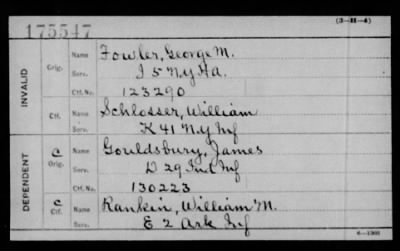 175547 (3-H-4)
INVALID
Orig. Name Fowler, George M.
Serv. I 5 N.Y. H A.
Ctf. No. 123290
Ctf. Name Schlosser, William
Serv. K 41 N.Y Inf
DEPENDENT
C Orig. Name Gouldsbury, James
Serv. D 29 Ind Inf
Ctf. No. 130223
C Ctf. Name Rankin, William M.
Serv. E 2 Ark Inf